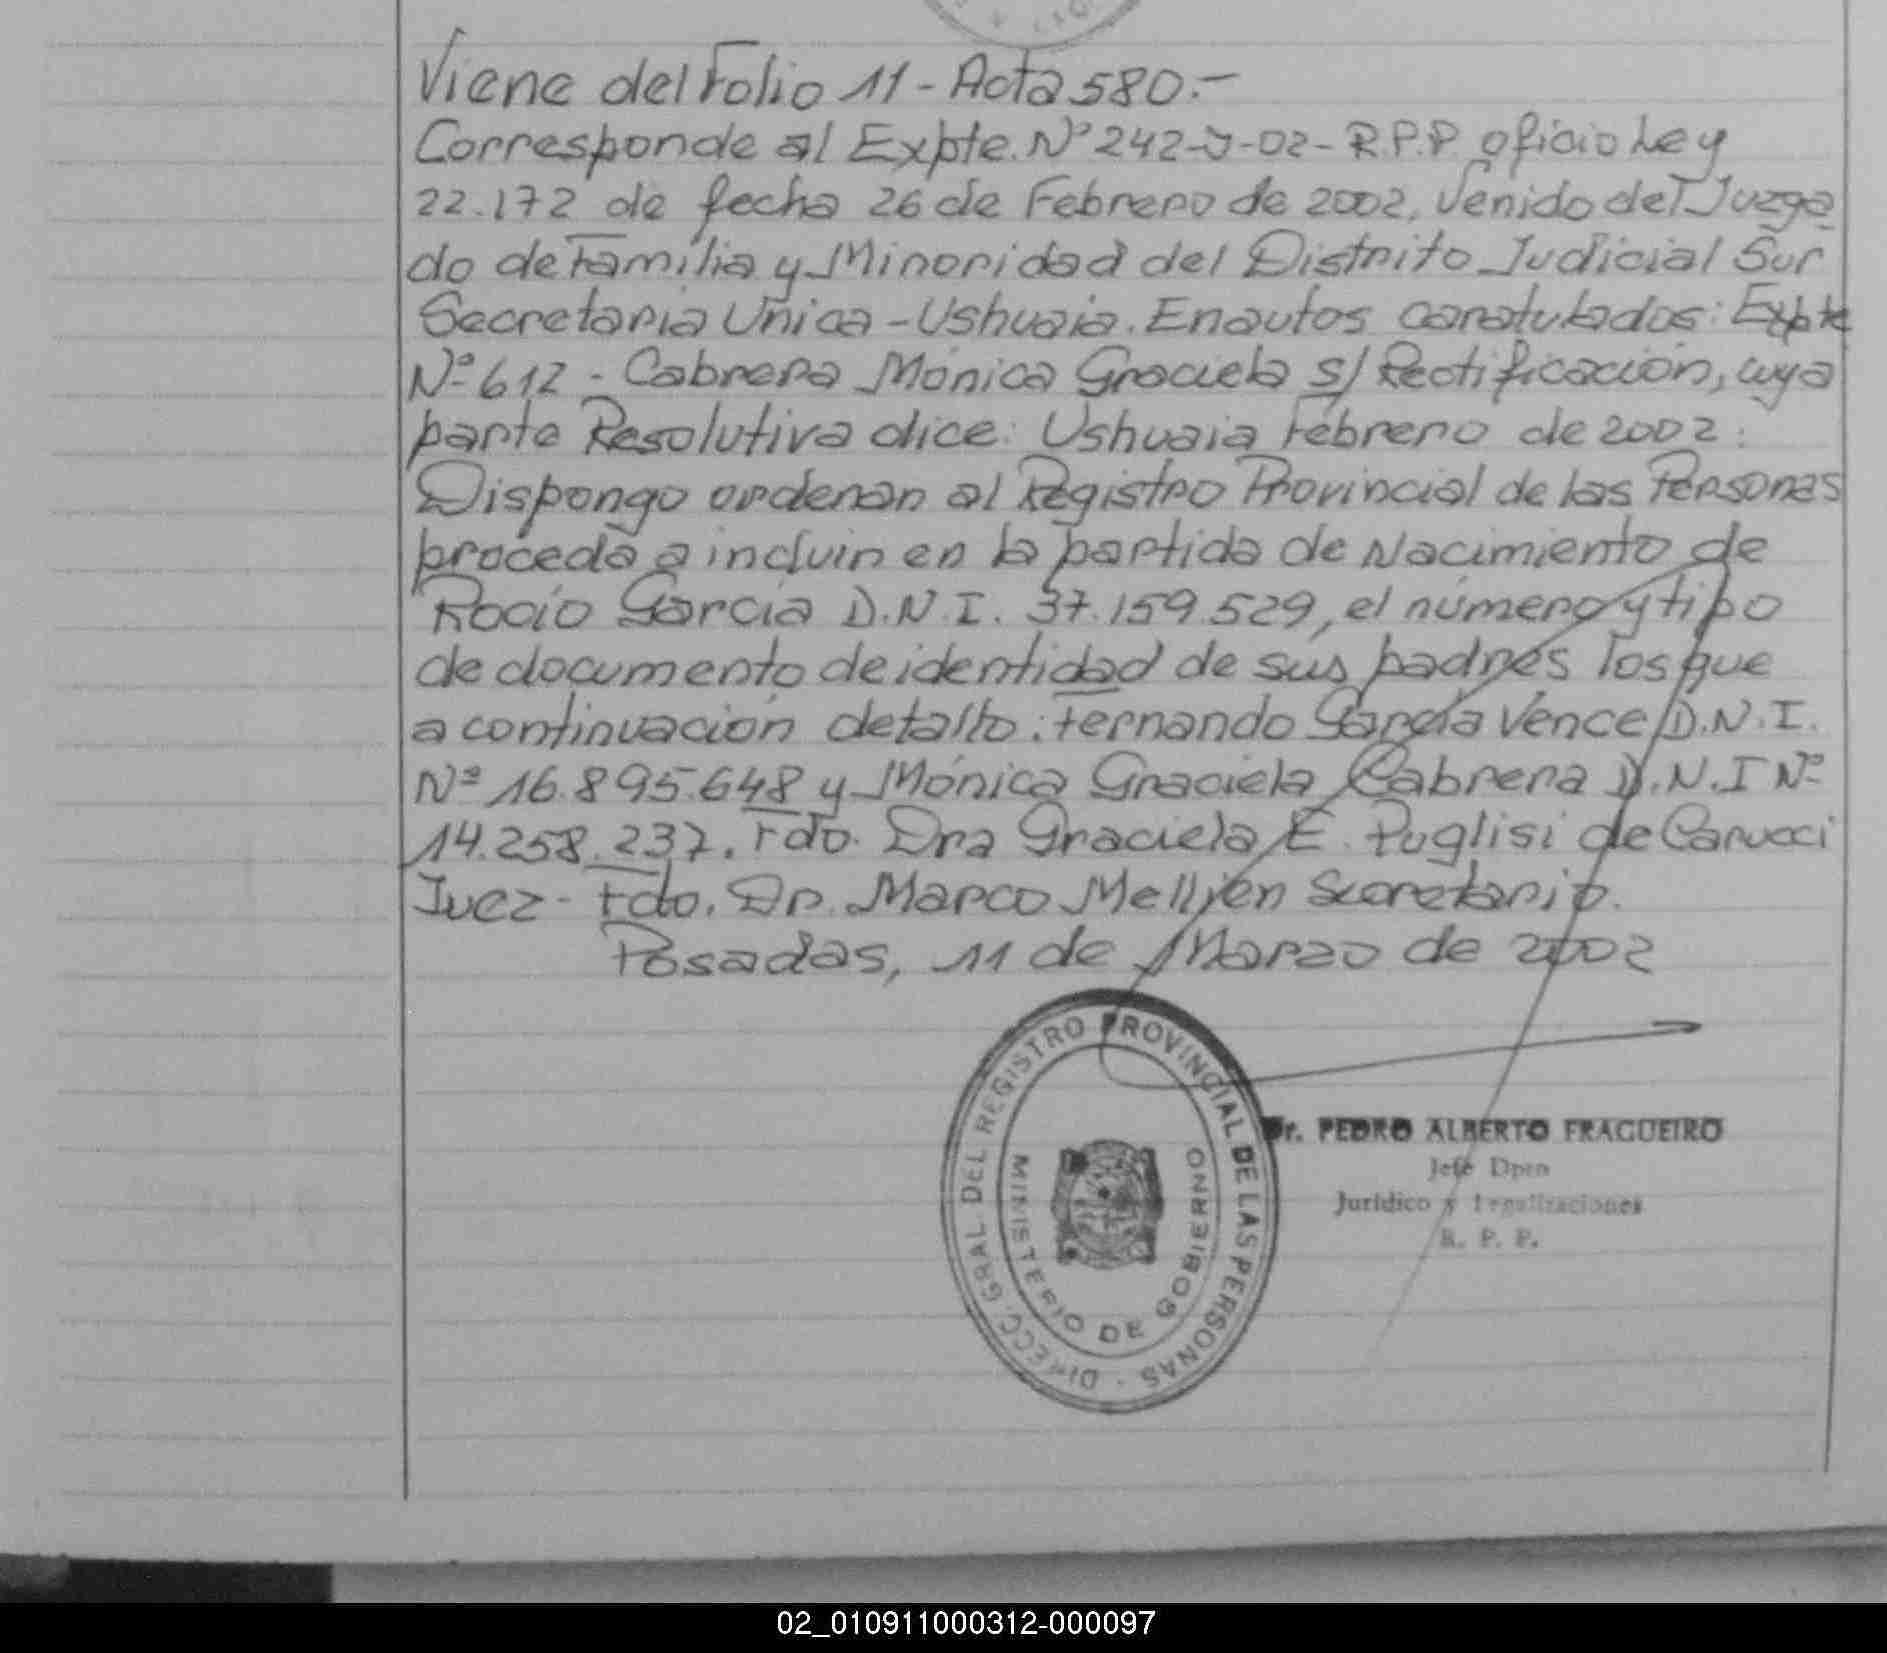 Viene del Folio 11 - Acta 580.-
Corresponde al Expte. Nº 242-J-02-R.P.P. oficio Ley
22.172 de fecha 26 de Febrero de 2002, Venido del Juzga
do de Familia y Minoridad del Distrito Judicial Sur
Secretaria Unica - Ushuaia. En autos caratulados: Expte
Nº 612 - Cabrera Mónica Graciela s/ Rectificación, cuya
parte Resolutiva dice: Ushuaia Febrero de 2002:
Dispongo ordenar al Registro Provincial de las Personas
proceda a incluir en la partida de Nacimiento de
Rocío García D.N.I. 37.159.529, el número y tipo
de documento de identidad de sus padres los que
a continuación detallo: Fernando García Vence D.N.I.
Nº 16.895.648 y Mónica Graciela Cabrera D.N.I Nº
14.258.237. Fdo. Dra Graciela E. Puglisi de Carucci
Juez - Fdo. Dr. Marco Mellien Secretario.
Posadas, 11 de Marzo de 2002
DIRECC. GRAL. DEL REGISTRO PROVINCIAL DE LAS PERSONAS
MINISTERIO DE GOBIERNO
Dr. PEDRO ALBERTO FRAGUEIRO
Jefe Dpto
Jurídico y Legalizaciones
R. P. P.
02_010911000312-000097